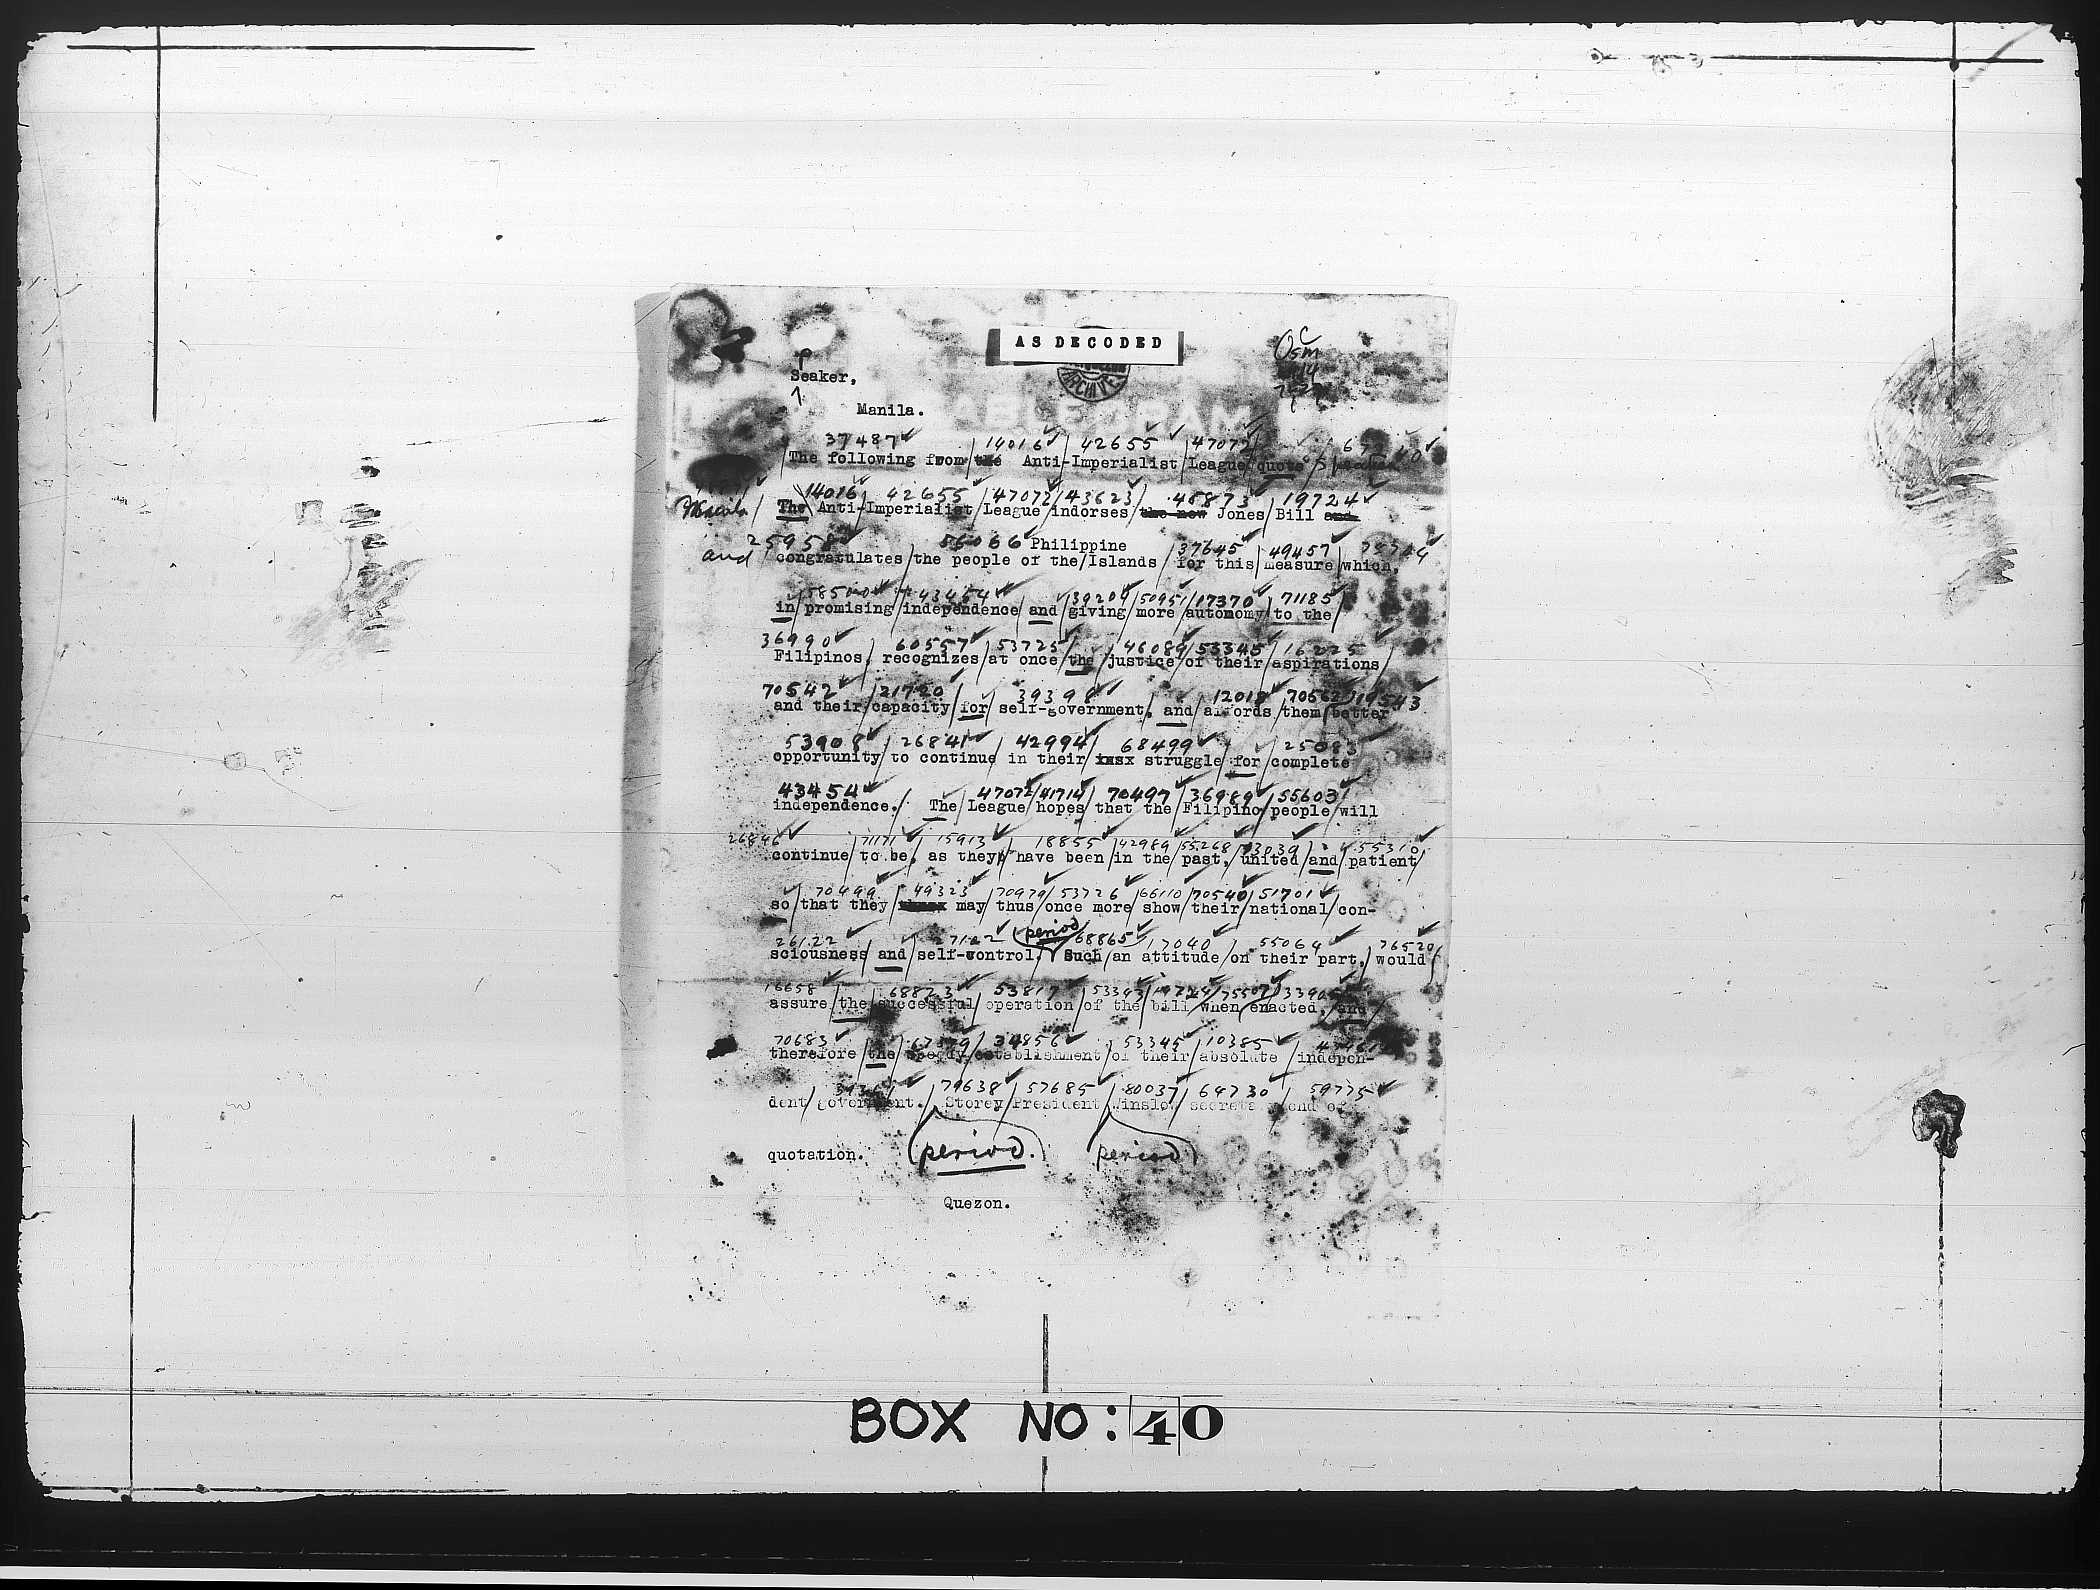 AS DECODED
ARCHIVE
p
Seaker,
Manila.
37487 14016 42655 47072
The following from the Anti-Imperialist League quote Speaker
14016 42655 47072 43623 45873 19724
Manila The Anti-Imperialist League indorses the new Jones Bill and
25958 56066 Philippine 37645 49457
and congratulates the people of the Islands for this measure which,
58500 43454 39204 50951 17370 71185
in promising independence and giving more autonomy to the
36990 60557 53725 46089 53345 16225
Filipinos, recognizes at once the justice of their aspirations
70542 21720 39398 12018 70562 19543
and their capacity for self-government, and affords them better
53908 26841 42994 68499 25083
opportunity to continue in their struggle for complete
43454 47072 41714 70497 36989 55603
independence. The League hopes that the Filipino people will
26846 71171 15913 18855 42989 55268 73039 55310
continue to be, as they have been in the past, united and patient
70499 49323 70979 53726 66110 70540 51701
so that they may thus once more show their national con-
26122 27122 period 68865 17040 55064 76520
sciousness and self-control. Such an attitude on their part, would
16658 68823 53817 53343 19724 75507
assure the successful operation of the bill when enacted, and
70683 34856 53345 10385
therefore the speedy establishment of their absolute indepen-
79638 57685 80037 64730 59775
dent government. Storey President Winslow secretary end of
quotation. (period.) (period)
Quezon.
BOX NO: 40